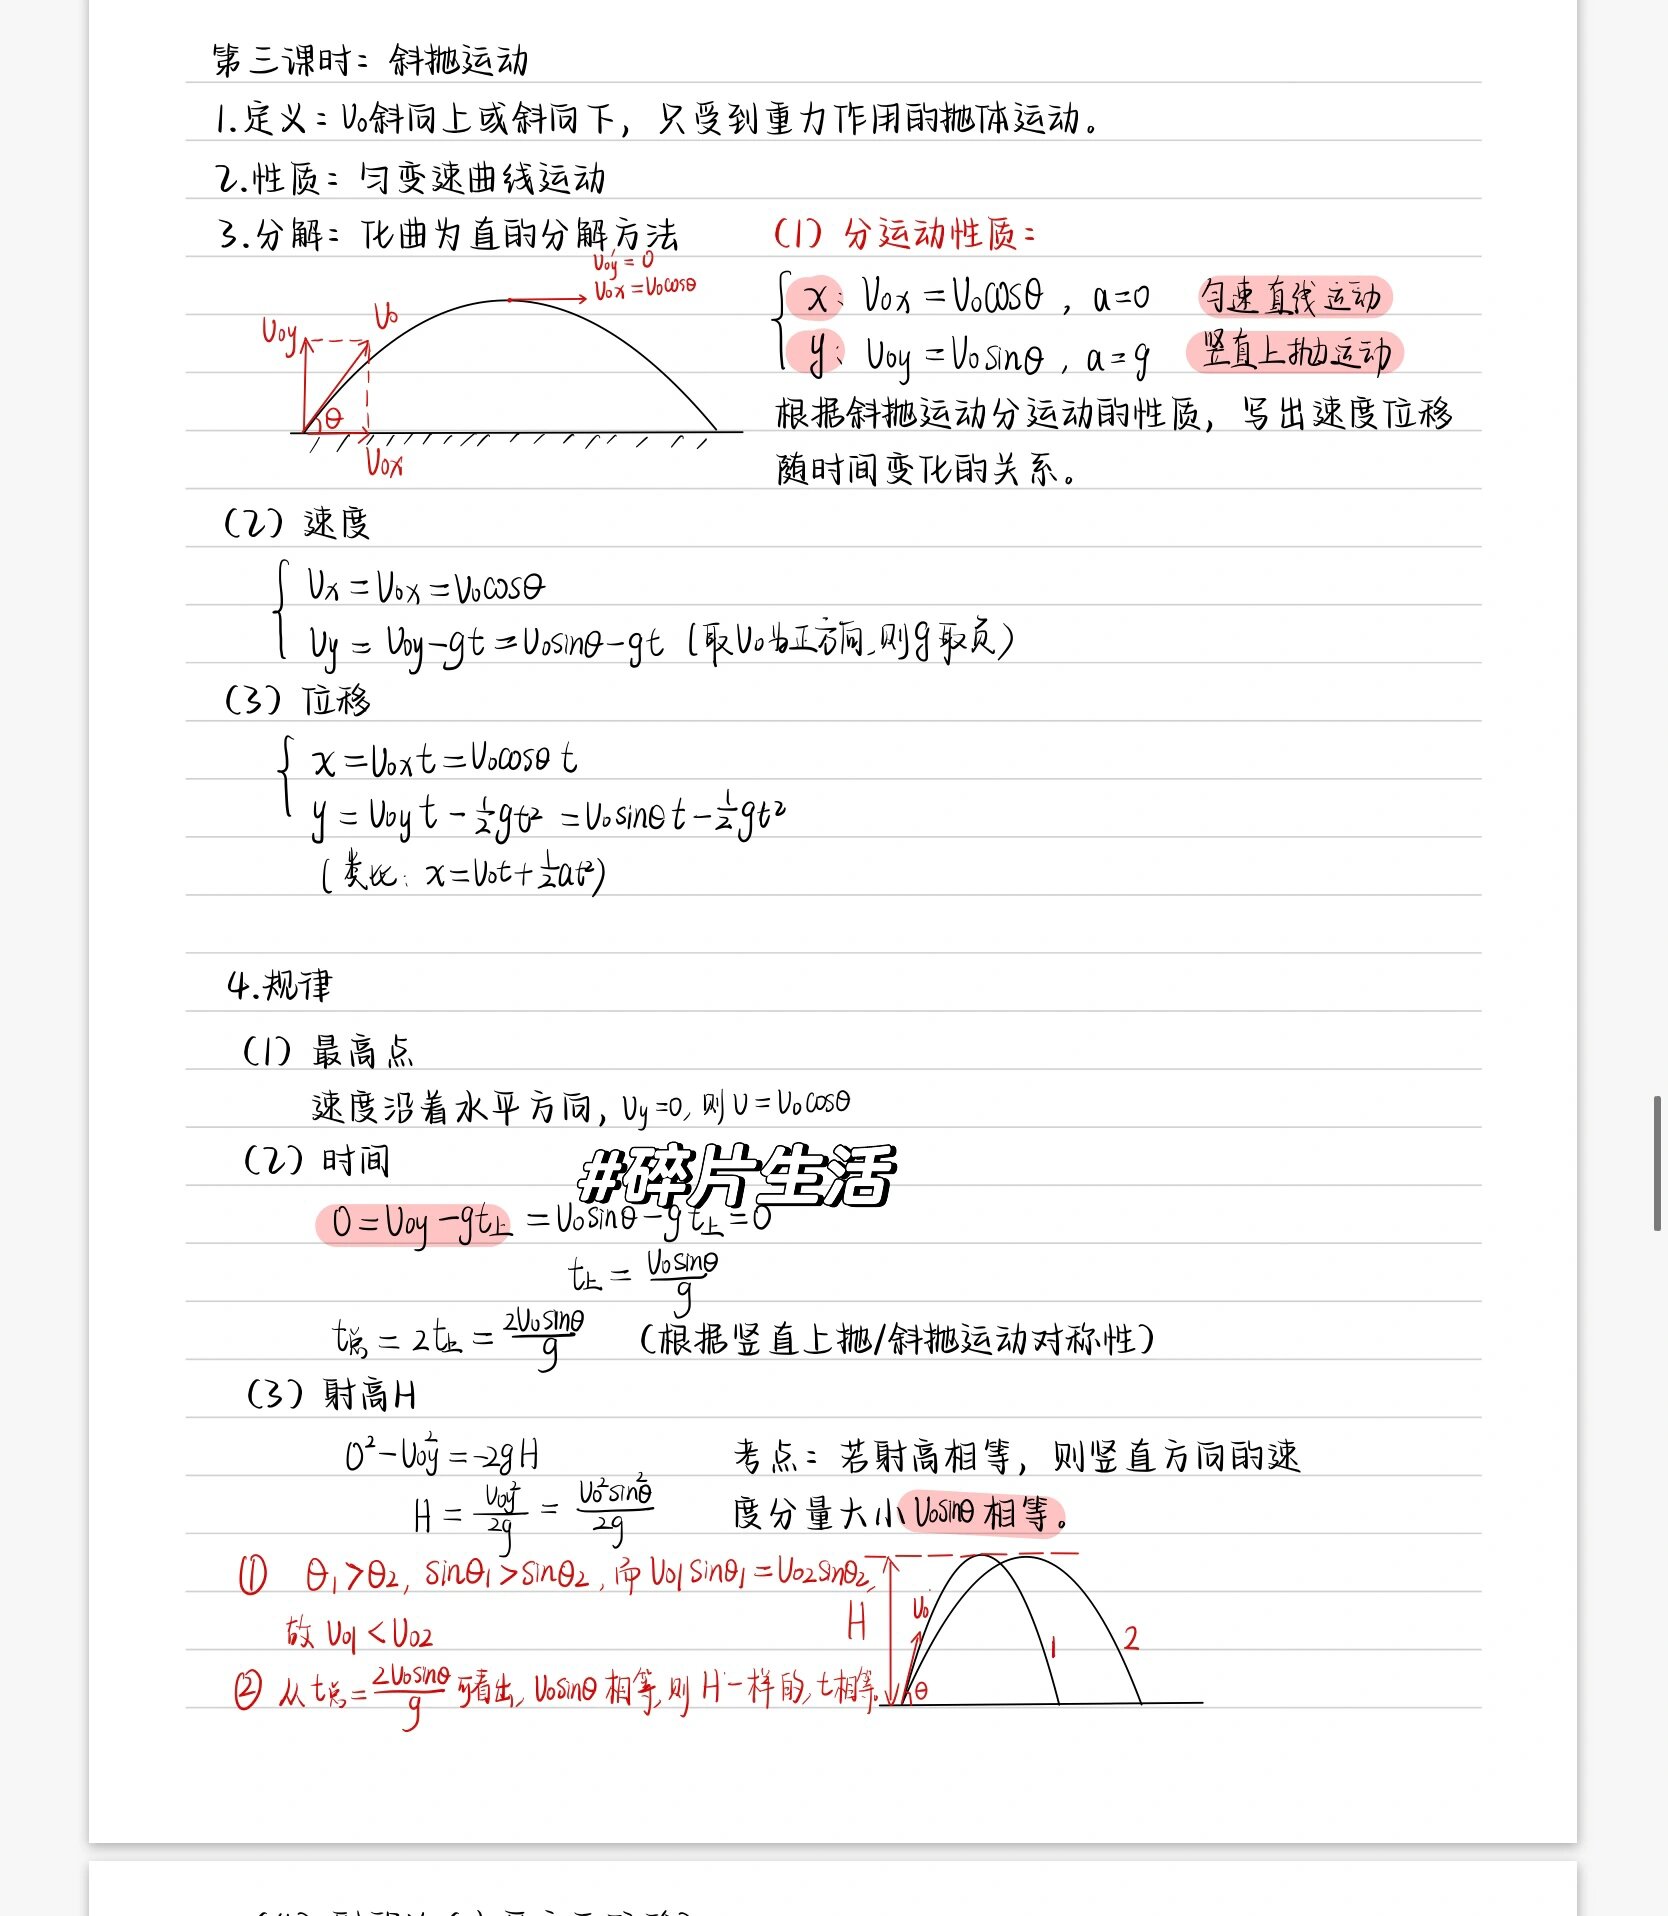 第三课时：斜抛运动
1.定义：V₀斜向上或斜向下，只受到重力作用的抛体运动。
2.性质：匀变速曲线运动
3.分解：化曲为直的分解方法
V₀y=0
V₀x=V₀cosθ
V₀
V₀y
θ
V₀x
(1) 分运动性质：
x：V₀x=V₀cosθ，a=0 匀速直线运动
y：V₀y=V₀sinθ，a=g 竖直上抛运动
根据斜抛运动分运动的性质，写出速度位移
随时间变化的关系。
(2) 速度
Vx=V₀x=V₀cosθ
Vy=V₀y-gt=V₀sinθ-gt (取V₀为正方向,则g取负)
(3) 位移
x=V₀xt=V₀cosθ t
y=V₀yt-½gt²=V₀sinθt-½gt²
(类比：x=V₀t+½at²)
4.规律
(1) 最高点
速度沿着水平方向，Vy=0,则V=V₀cosθ
(2) 时间
#碎片生活
0=V₀y-gt上=V₀sinθ-gt上=0
t上=V₀sinθ/g
t总=2t上=2V₀sinθ/g (根据竖直上抛/斜抛运动对称性)
(3) 射高H
0²-V₀y²=-2gH
H=V₀y²/2g=V₀²sin²θ/2g
考点：若射高相等，则竖直方向的速
度分量大小V₀sinθ相等。
① θ₁>θ₂, sinθ₁>sinθ₂,而V₀₁sinθ₁=V₀₂sinθ₂,
故V₀₁<V₀₂
② 从t总=2V₀sinθ/g可看出,V₀sinθ相等,则H一样的,t相等。
H
V₀
θ
1
2